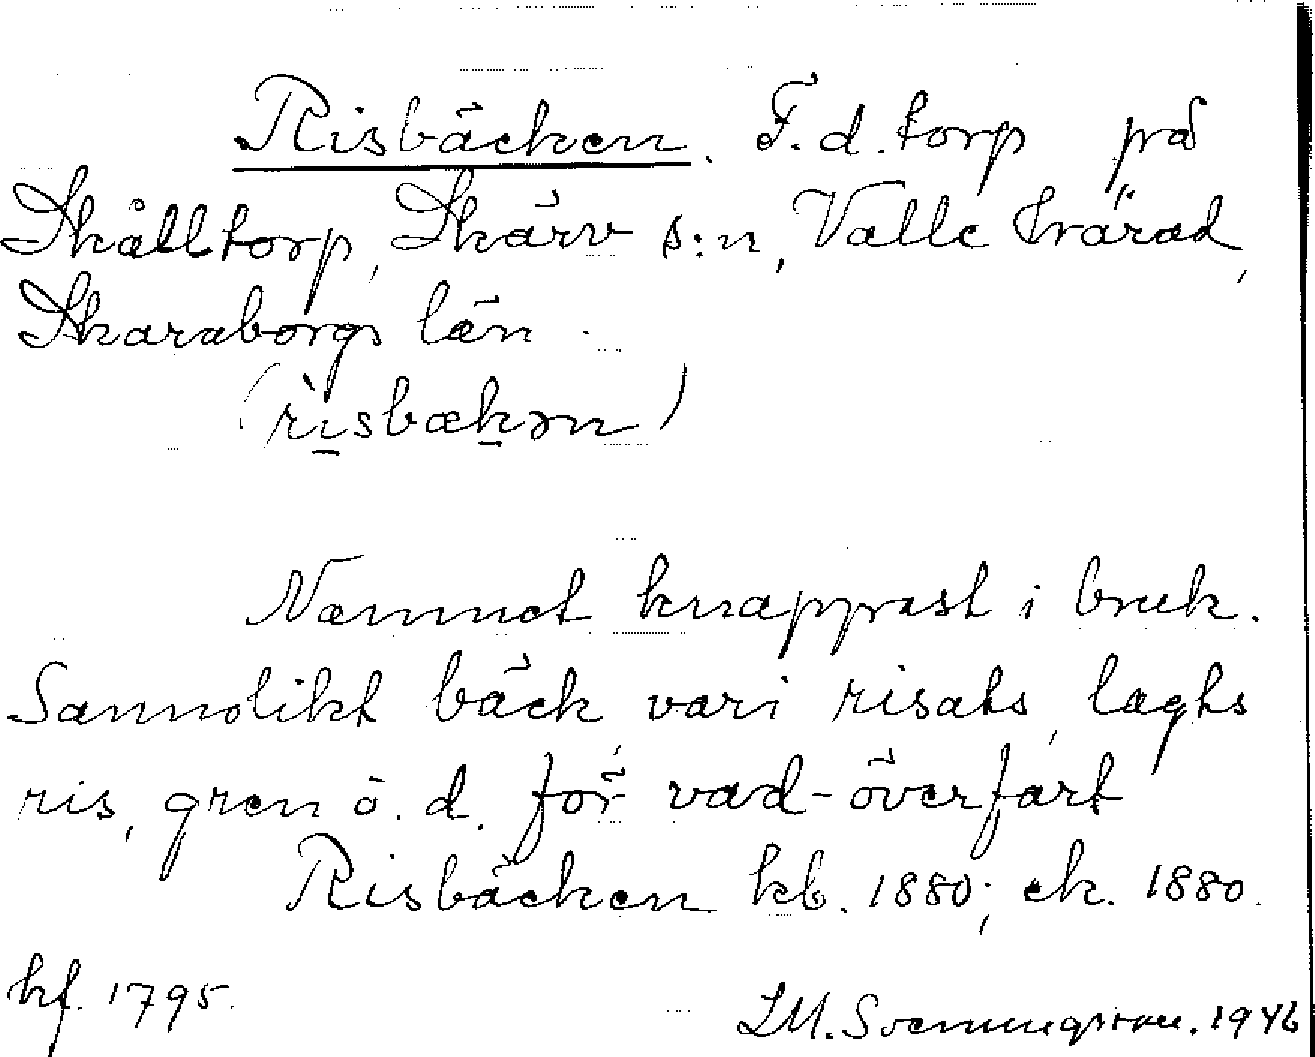 Risbäcken. F.d. torp på
Skålltorp, Skärv s:n, Valle härad,
Skaraborgs län.
(rìsbækən)
Namnet knappast i bruk.
Sannolikt bäck vari risats, lagts
ris, gren o. d. för vad-överfart
Risbäcken kb. 1880; ek. 1880.
hf. 1795.
I.M. Svenungsson. 1946